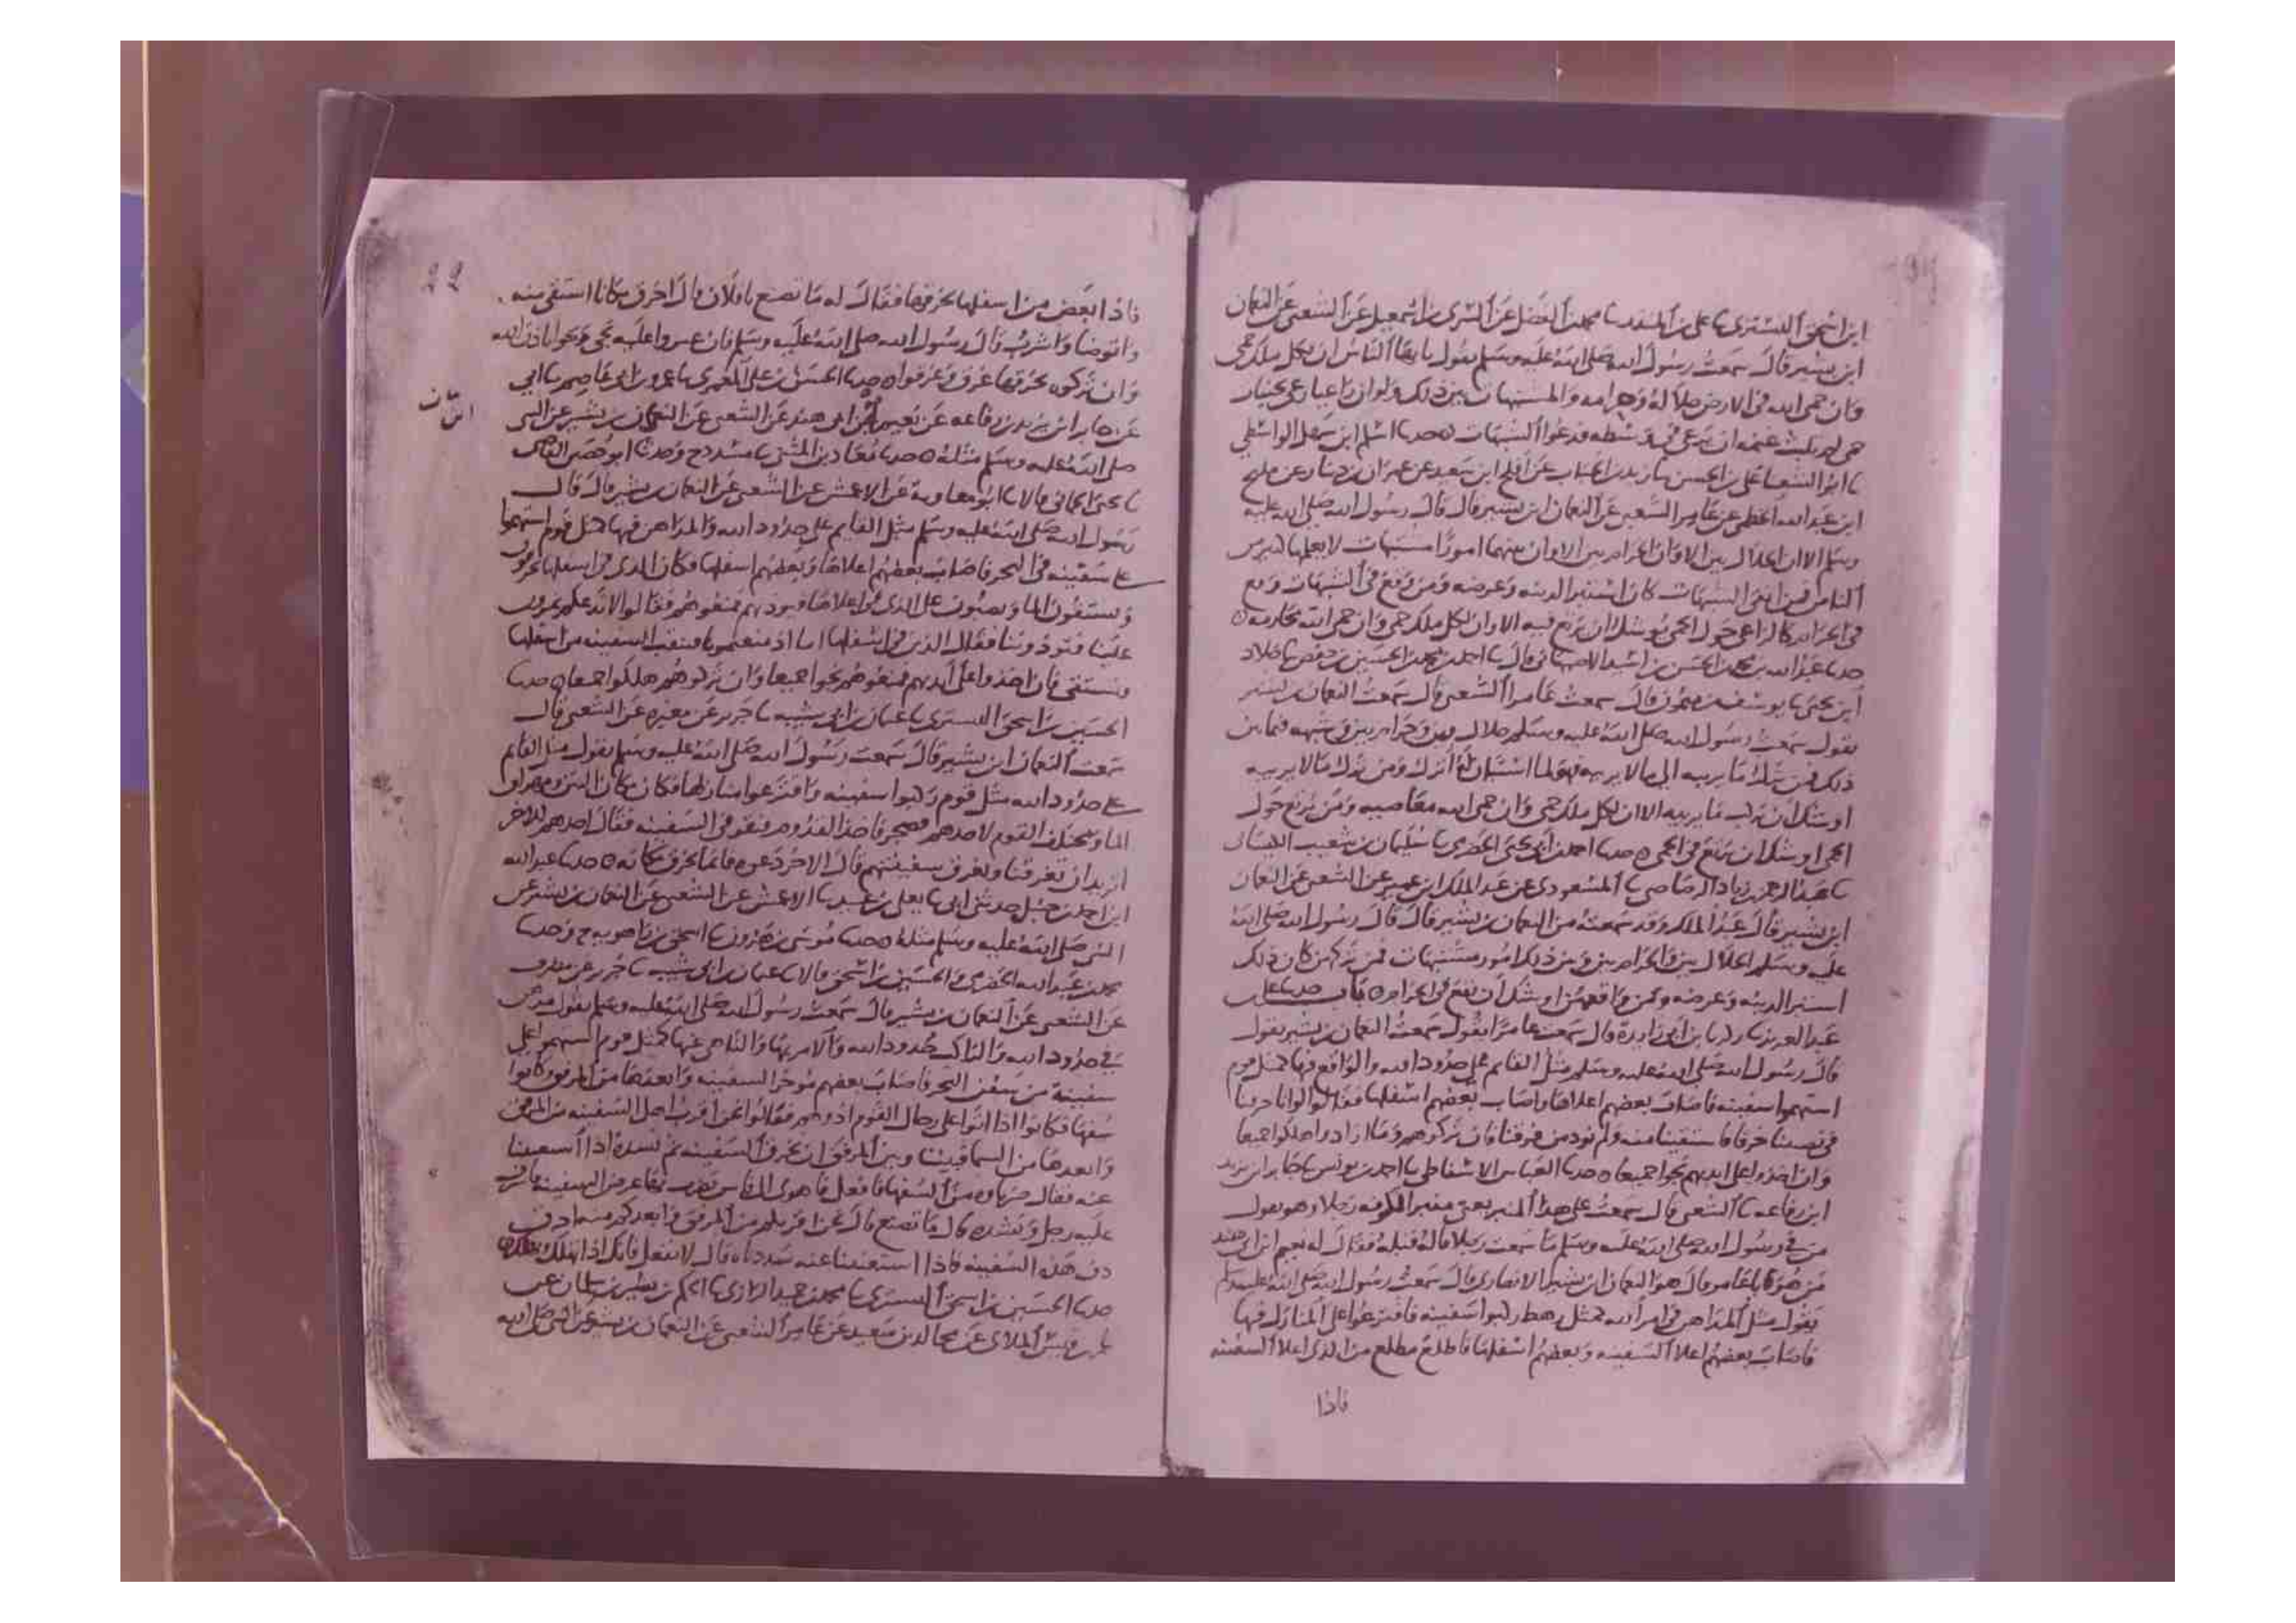 ابن اسحق التستري نا علي بن المنذر نا محمد بن الفضل عن السري بن اسمعيل عن الشعبي عن النعمان
ابن بشير قال سمعت رسول الله صلى الله عليه وسلم يقول يا ايها الناس ان لكل ملك حمى
وان حمى الله في الارض حلاله وحرامه والمشتبهات بين ذلك ولو ان راعيا رعى بجنبات
حمى لم تلبث غنمه ان ترعى في وسطه فدعوا الشبهات حدثنا اسلم ابن سهل الواسطي
نا ابو الشعثا علي بن الحسن نا زيد بن الحباب عن افلح ابن سعيد عن عمران بن دينار عن
ابن عبد الله الخطمي عن عامر الشعبي عن النعمان ابن بشير قال قال رسول الله صلى الله عليه
وسلم الا ان الحلال بين الا وان الحرام بين الا وان بينهما امورا مشتبهات لا يعلمها كثير من
الناس فمن اتقى الشبهات كان استبرا لدينه وعرضه ومن وقع في الشبهات وقع
في الحرام كالراعي حول الحمى يوشك ان يرتع فيه الا وان لكل ملك حمى وان حمى الله محارمه
حدثنا عبد الله بن محمد بن الحسن بن اسيد الاصبهاني قال نا احمد بن محمد بن الحسين بن حفص نا خلاد
ابن يحيى نا يوسف بن ميمون قال سمعت عامرا الشعبي قال سمعت النعمان بن بشير
يقول سمعت رسول الله صلى الله عليه وسلم حلال بين وحرام بين وشبهة فيما بين
ذلك فمن ترك ما يريبه الى ما لا يريبه فهو لما استبان له اترك ومن ترك ما لا يريبه
اوشك ان يركب ما يريبه الا ان لكل ملك حمى وان حمى الله معاصيه ومن يرتع حول
الحمى اوشك ان يرتع في الحمى حدثنا احمد بن ابي يحيى الحضرمي نا سليمان بن شعيب الكيساني
نا عبد الرحمن بن زياد الرصاصي نا المسعودي عن عبد الملك ابن عمير عن الشعبي عن النعمان
ابن بشير قال عبد الملك وقد سمعته من النعمان بن بشير قال قال رسول الله صلى الله
عليه وسلم الحلال بين والحرام بين وبين ذلك امور مشتبهات فمن تركهن كان ذلك
استبرا لدينه وعرضه ومن واقعهن اوشك ان يقع في الحرام باب حدثنا علي بن
عبد العزيز نا زكريا بن ابي زايدة قال سمعت عامرا يقول سمعت النعمان بن بشير يقول
قال رسول الله صلى الله عليه وسلم مثل القايم على حدود الله والواقع فيها كمثل قوم
استهموا سفينه فاصاب بعضهم اعلاها واصاب بعضهم اسفلها فقالوا لوانا خرقنا
في نصيبنا خرقا فاستقينا منه ولم نوذ من فوقنا فان تركوهم وما ارادوا هلكوا جميعا
وان اخذوا على ايديهم نجوا جميعا حدثنا العباس الاسفاطي نا احمد بن يونس نا جابر ابن يزيد
ابن رفاعه نا الشعبي قال سمعت على هذا المنبر يعني منبر الكوفه رجلا وهو يقول
من في رسول الله صلى الله عليه وسلم ما سمعت رجلا قاله قبله فقال له نعيم ابن ابي هند
من هو يا با عامر قال هو النعمان ابن بشير الانصاري قال سمعت رسول الله صلى الله عليه وسلم
يقول مثل المداهن في امر الله كمثل رهط ركبوا سفينه فاقترعوا على المنازل فيها
فاصاب بعضهم اعلا السفينه وبعضهم اسفلها فاطلع مطلع من الذي اعلا السفينه
فاذا
22
فاذا بعض من اسفلها يخرقها فقال له ما تصنع يا فلان قال اخرق مكانا استقي منه
واتوضا واشرب قال رسول الله صلى الله عليه وسلم فان عليه نجى ونجوا باذن الله
وان تركوه يخرقها غرق وغرقوا حدثنا الحسن بن علي المعمري نا عمرو بن ابي عاصم نا ابي
عن جابر ابن يزيد بن رفاعه عن نعيم ابن ابي هند عن الشعبي عن النعمان بن بشير عن النبي
صلى الله عليه وسلم مثله حدثنا معاذ بن المثنى نا مسدد ح وحدثنا ابو حصين القاضي
نا يحيى الحماني قالا نا ابو معاوية عن الاعمش عن الشعبي عن النعمان بن بشير قال قال
رسول الله صلى الله عليه وسلم مثل القايم على حدود الله والمداهن فيها كمثل قوم استهموا
على سفينه في البحر فاصاب بعضهم اعلاها وبعضهم اسفلها فكان الذي في اسفلها يخرجون
ويستقون الما ويصبون على الذي في اعلاها فيوذيهم فمنعوهم فقالوا لا ندعكم تمرون
علينا وتوذوننا فقال الذين في اسفلها اما اذ منعتمونا فننقب السفينه من اسفلها
ونستقي فان اخذوا على ايديهم فمنعوهم نجوا جميعا وان تركوهم هلكوا جميعا حدثنا
الحسين بن اسحق التستري نا عثمان بن ابي شيبه نا جرير عن مغيره عن الشعبي قال
سمعت النعمان ابن بشير قال سمعت رسول الله صلى الله عليه وسلم يقول مثل القايم
على حدود الله مثل قوم ركبوا سفينه واقترعوا منازلها فكان مكان
الما ومختلف القوم لاحدهم فضجر فاخذ القدوم فنقر في السفينه فقال احدهم للاخر
اتريد ان تغرقنا وتغرق سفينتهم قال الاخر دعوه فانما يخرق مكانه حدثنا عبد الله
ابن احمد بن حنبل حدثني ابي نا يعلى بن عبيد نا الاعمش عن الشعبي عن النعمان بن بشير عن
النبي صلى الله عليه وسلم مثله حدثنا موسى بن هرون نا اسحق بن راهويه ح وحدثنا
محمد بن عبد الله الحضرمي والحسين بن اسحق قالا نا عثمان بن ابي شيبه نا جرير عن مطرف
عن الشعبي عن النعمان بن بشير قال سمعت رسول الله صلى الله عليه وسلم يقول
في حدود الله والتارك لحدود الله والامر بها والناهي عنها كمثل قوم استهموا على
سفينة من سفن البحر فاصاب بعضهم موخر السفينه وابعدها من المرفق وكانوا
سفها فكانوا اذا اتوا على رحال القوم اذوهم فقالوا نحن اقرب اهل السفينه من المرفق
وابعدها من الما فبيننا وبين المرفق ان نخرق السفينه ثم نسده اذا استغنينا
عنه فقال من السفها فافعل فاهوى الى فاس يضرب بها عرض السفينه فاشرف
عليه رجل ونشده قال ما تصنع قال نحن اقربكم من المرفق وابعدكم منه اخرق
دف هذه السفينه فاذا استغنينا عنه سددناه قال لا تفعل فانك اذا تهلك ونهلك
حدثنا الحسين بن اسحق التستري نا محمد بن حميد الرازي نا الحكم بن بشير بن سلمان عن
عمرو بن قيس الملائي عن مجالد بن سعيد عن عامر الشعبي عن النعمان بن بشير عن النبي صلى الله